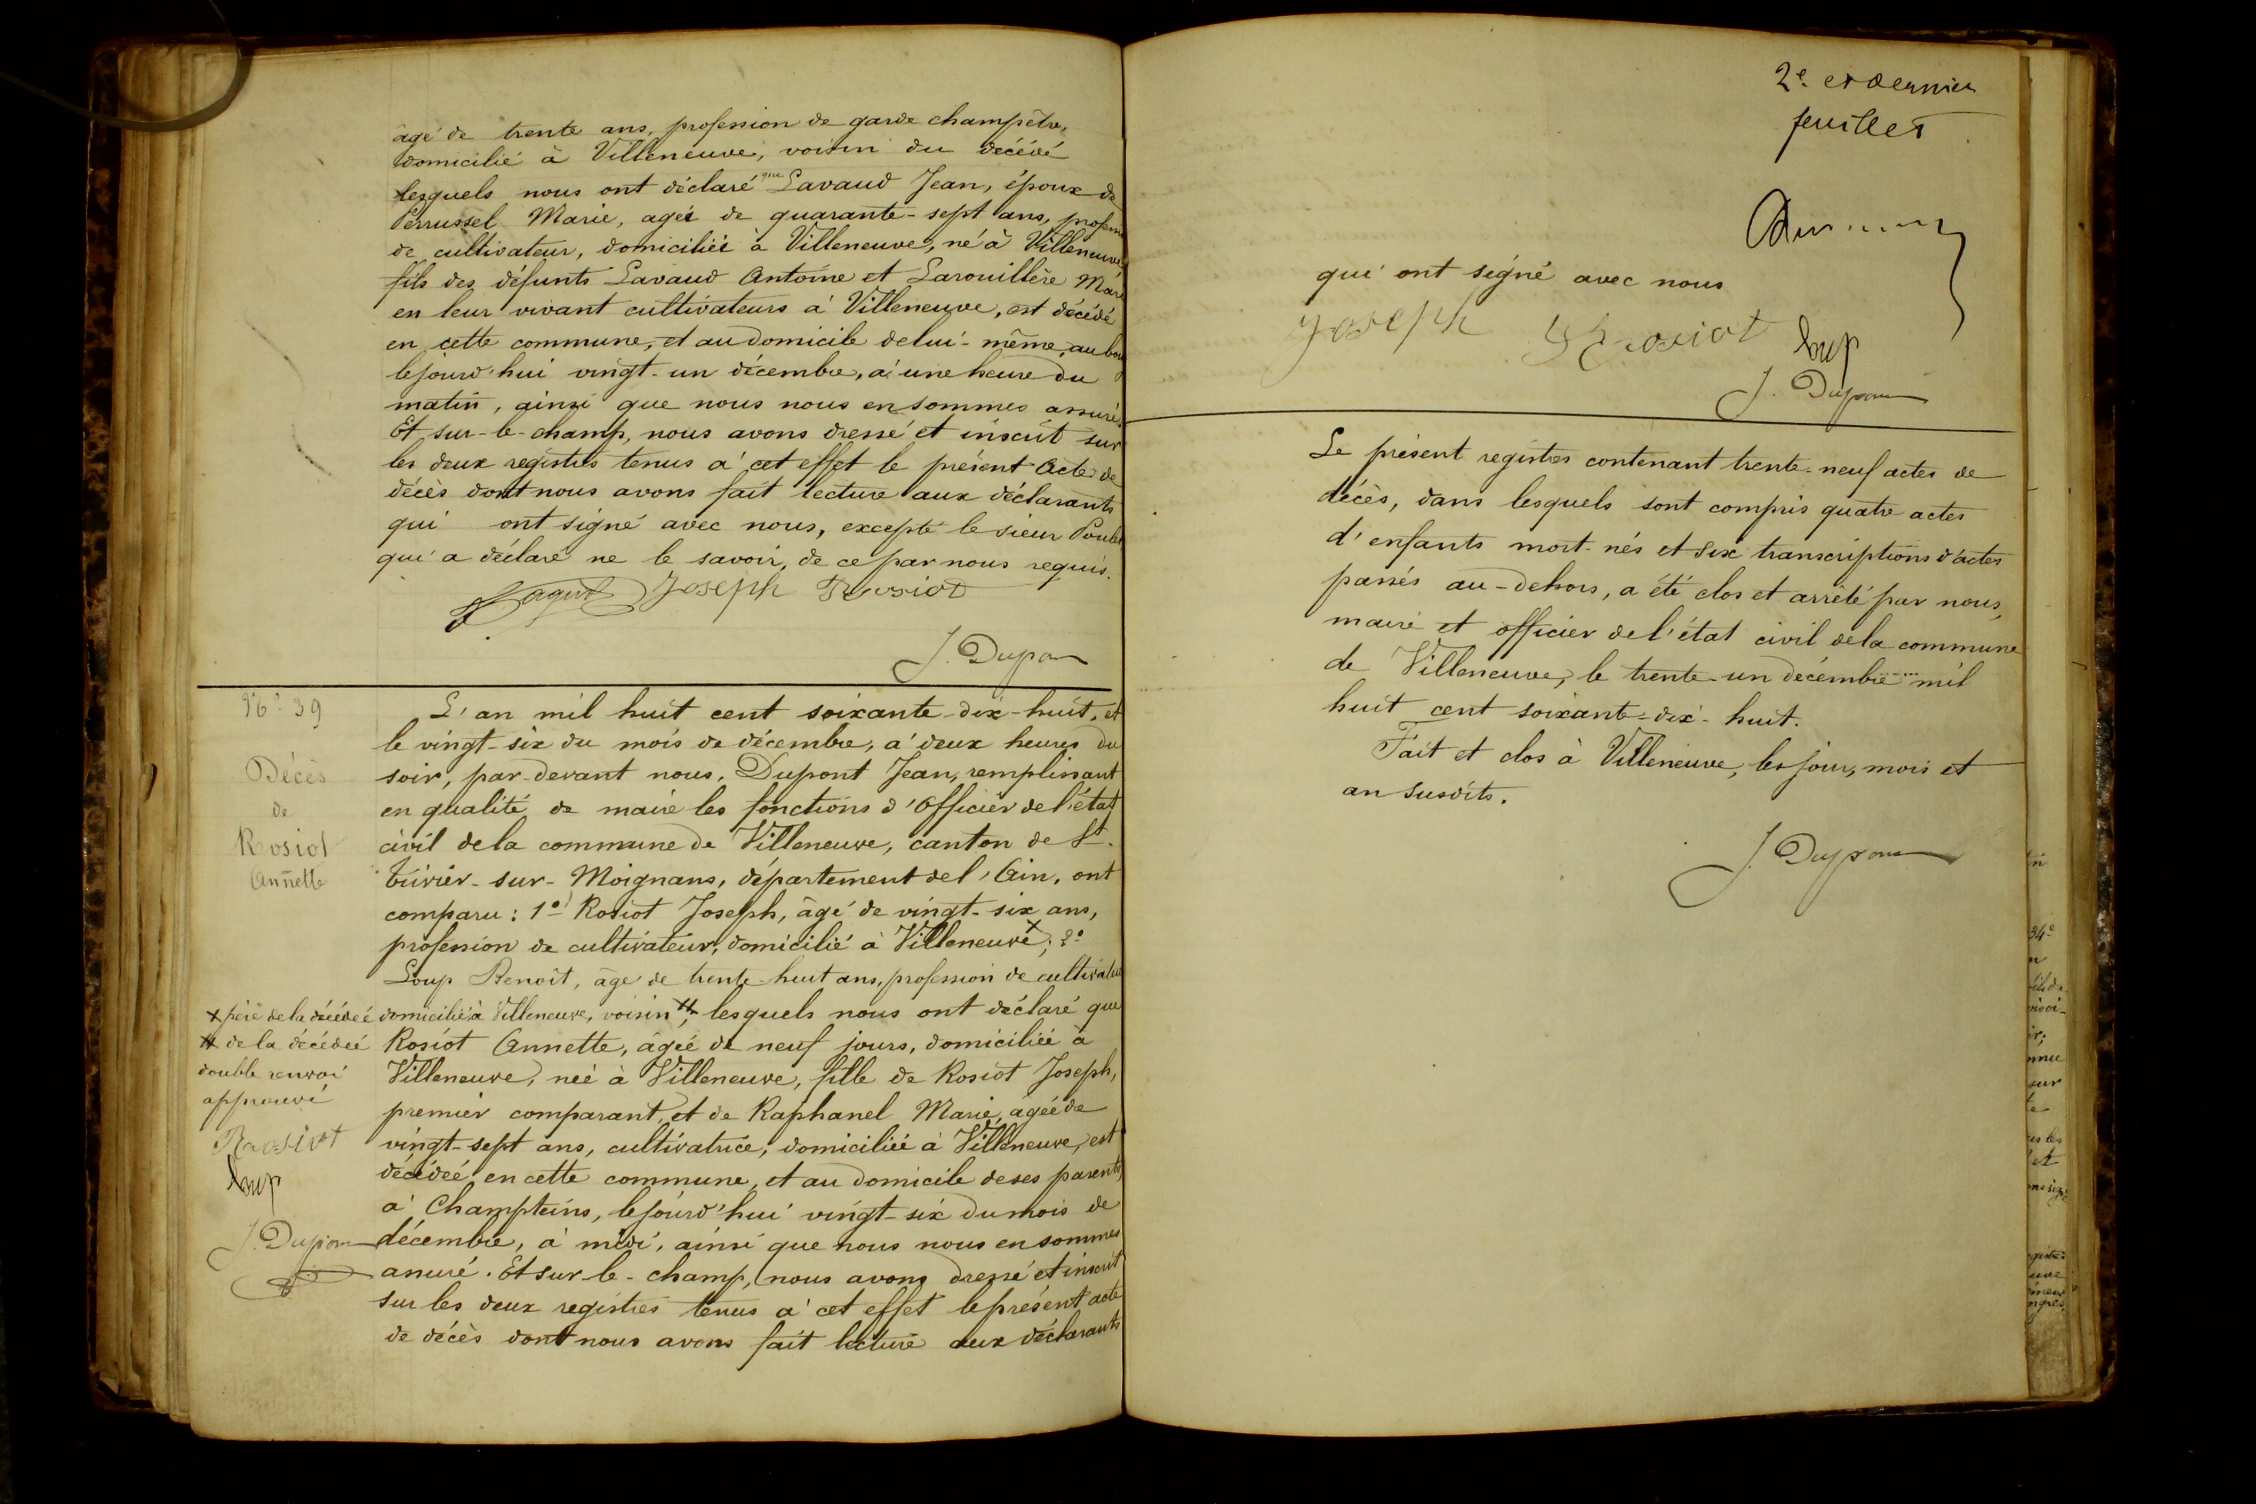 âgé de trente ans, profession de garde champêtre,
domicilié à Villeneuve, voisin du décédé
lesquels nous ont déclaré que Lavaud Jean, époux de
Perrussel Marie, agée de quarante-sept ans, profession
de cultivateur, domiciliée à Villeneuve, né à Villeneuve,
fils des défunts Lavaud Antoine et Larouillère Marie
en leur vivant cultivateurs à Villeneuve, est décédé
en cette commune, et au domicile de lui-même, au
lejourd'hui vingt-un décembre, à une heure du
matin, ainsi que nous nous en sommes assuré.
Et sur-le-champ, nous avons dressé et inscrit sur
les deux registres tenus à cet effet le présent Acte de
décès dont nous avons fait lecture aux déclarants
qui ont signé avec nous, excepté le sieur
qui a déclaré ne le savoir, de ce par nous requis.
Joseph Rosiot
J. Dupon
No 39
Décès
de
Rosiot
Annette
L'an mil huit cent soixante-dix-huit, et
le vingt-six du mois de décembre, à deux heures du
soir, par-devant nous, Dupont Jean, remplissant
en qualité de maire les fonctions d'Officier de l'état
civil de la commune de Villeneuve, canton de St.
Trivier-sur-Moignans, département de l'Ain, ont
comparu: 1o Rosiot Joseph, âgé de vingt-six ans,
profession de cultivateur, domicilié à Villeneuve x; 2o
Loup Benoît, âgé de trente-huit ans, profession de cultivateur
domicilié à Villeneuve, voisin #, lesquels nous ont déclaré que
Rosiot Annette, âgée de neuf jours, domiciliée à
Villeneuve, née à Villeneuve, fille de Rosiot Joseph,
premier comparant, et de Raphanel Marie, agée de
vingt-sept ans, cultivatrice, domiciliée à Villeneuve, est
décédée en cette commune, et au domicile de ses parents,
à Champteins, lejourd'hui vingt-six du mois de
décembre, à midi, ainsi que nous nous en sommes
assuré. Et sur-le-champ, nous avons dressé et inscrit
sur les deux registres tenus à cet effet le présent acte
de décès dont nous avons fait lecture aux déclarants
x père de la décédée
# de la décédée
double renvoi
approuvé
Rosiot
Loup
J. Dupon
2e et dernier
feuillet
qui ont signé avec nous
Joseph Rosiot
Loup
J. Dupon
Le présent registres contenant trente-neuf actes de
décès, dans lesquels sont compris quatre actes
d'enfants mort-nés et six transcriptions d'actes
passés au-dehors, a été clos et arrêté par nous,
maire et officier de l'état civil de la commune
de Villeneuve, le trente-un décembre mil
huit cent soixante-dix-huit.
Fait et clos à Villeneuve, les jour, mois et
an susdits.
J. Dupon